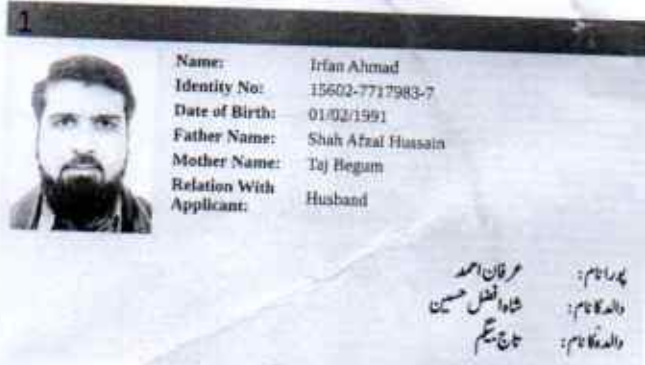 1
Name: Irfan Ahmad
Identity No: 15602-7717983-7
Date of Birth: 01/02/1991
Father Name: Shah Afzal Hussain
Mother Name: Taj Begum
Relation With
Applicant: Husband
پورا نام: عرفان احمد
والد کا نام: شاہ افضل حسین
والدہ کا نام: تاج بیگم